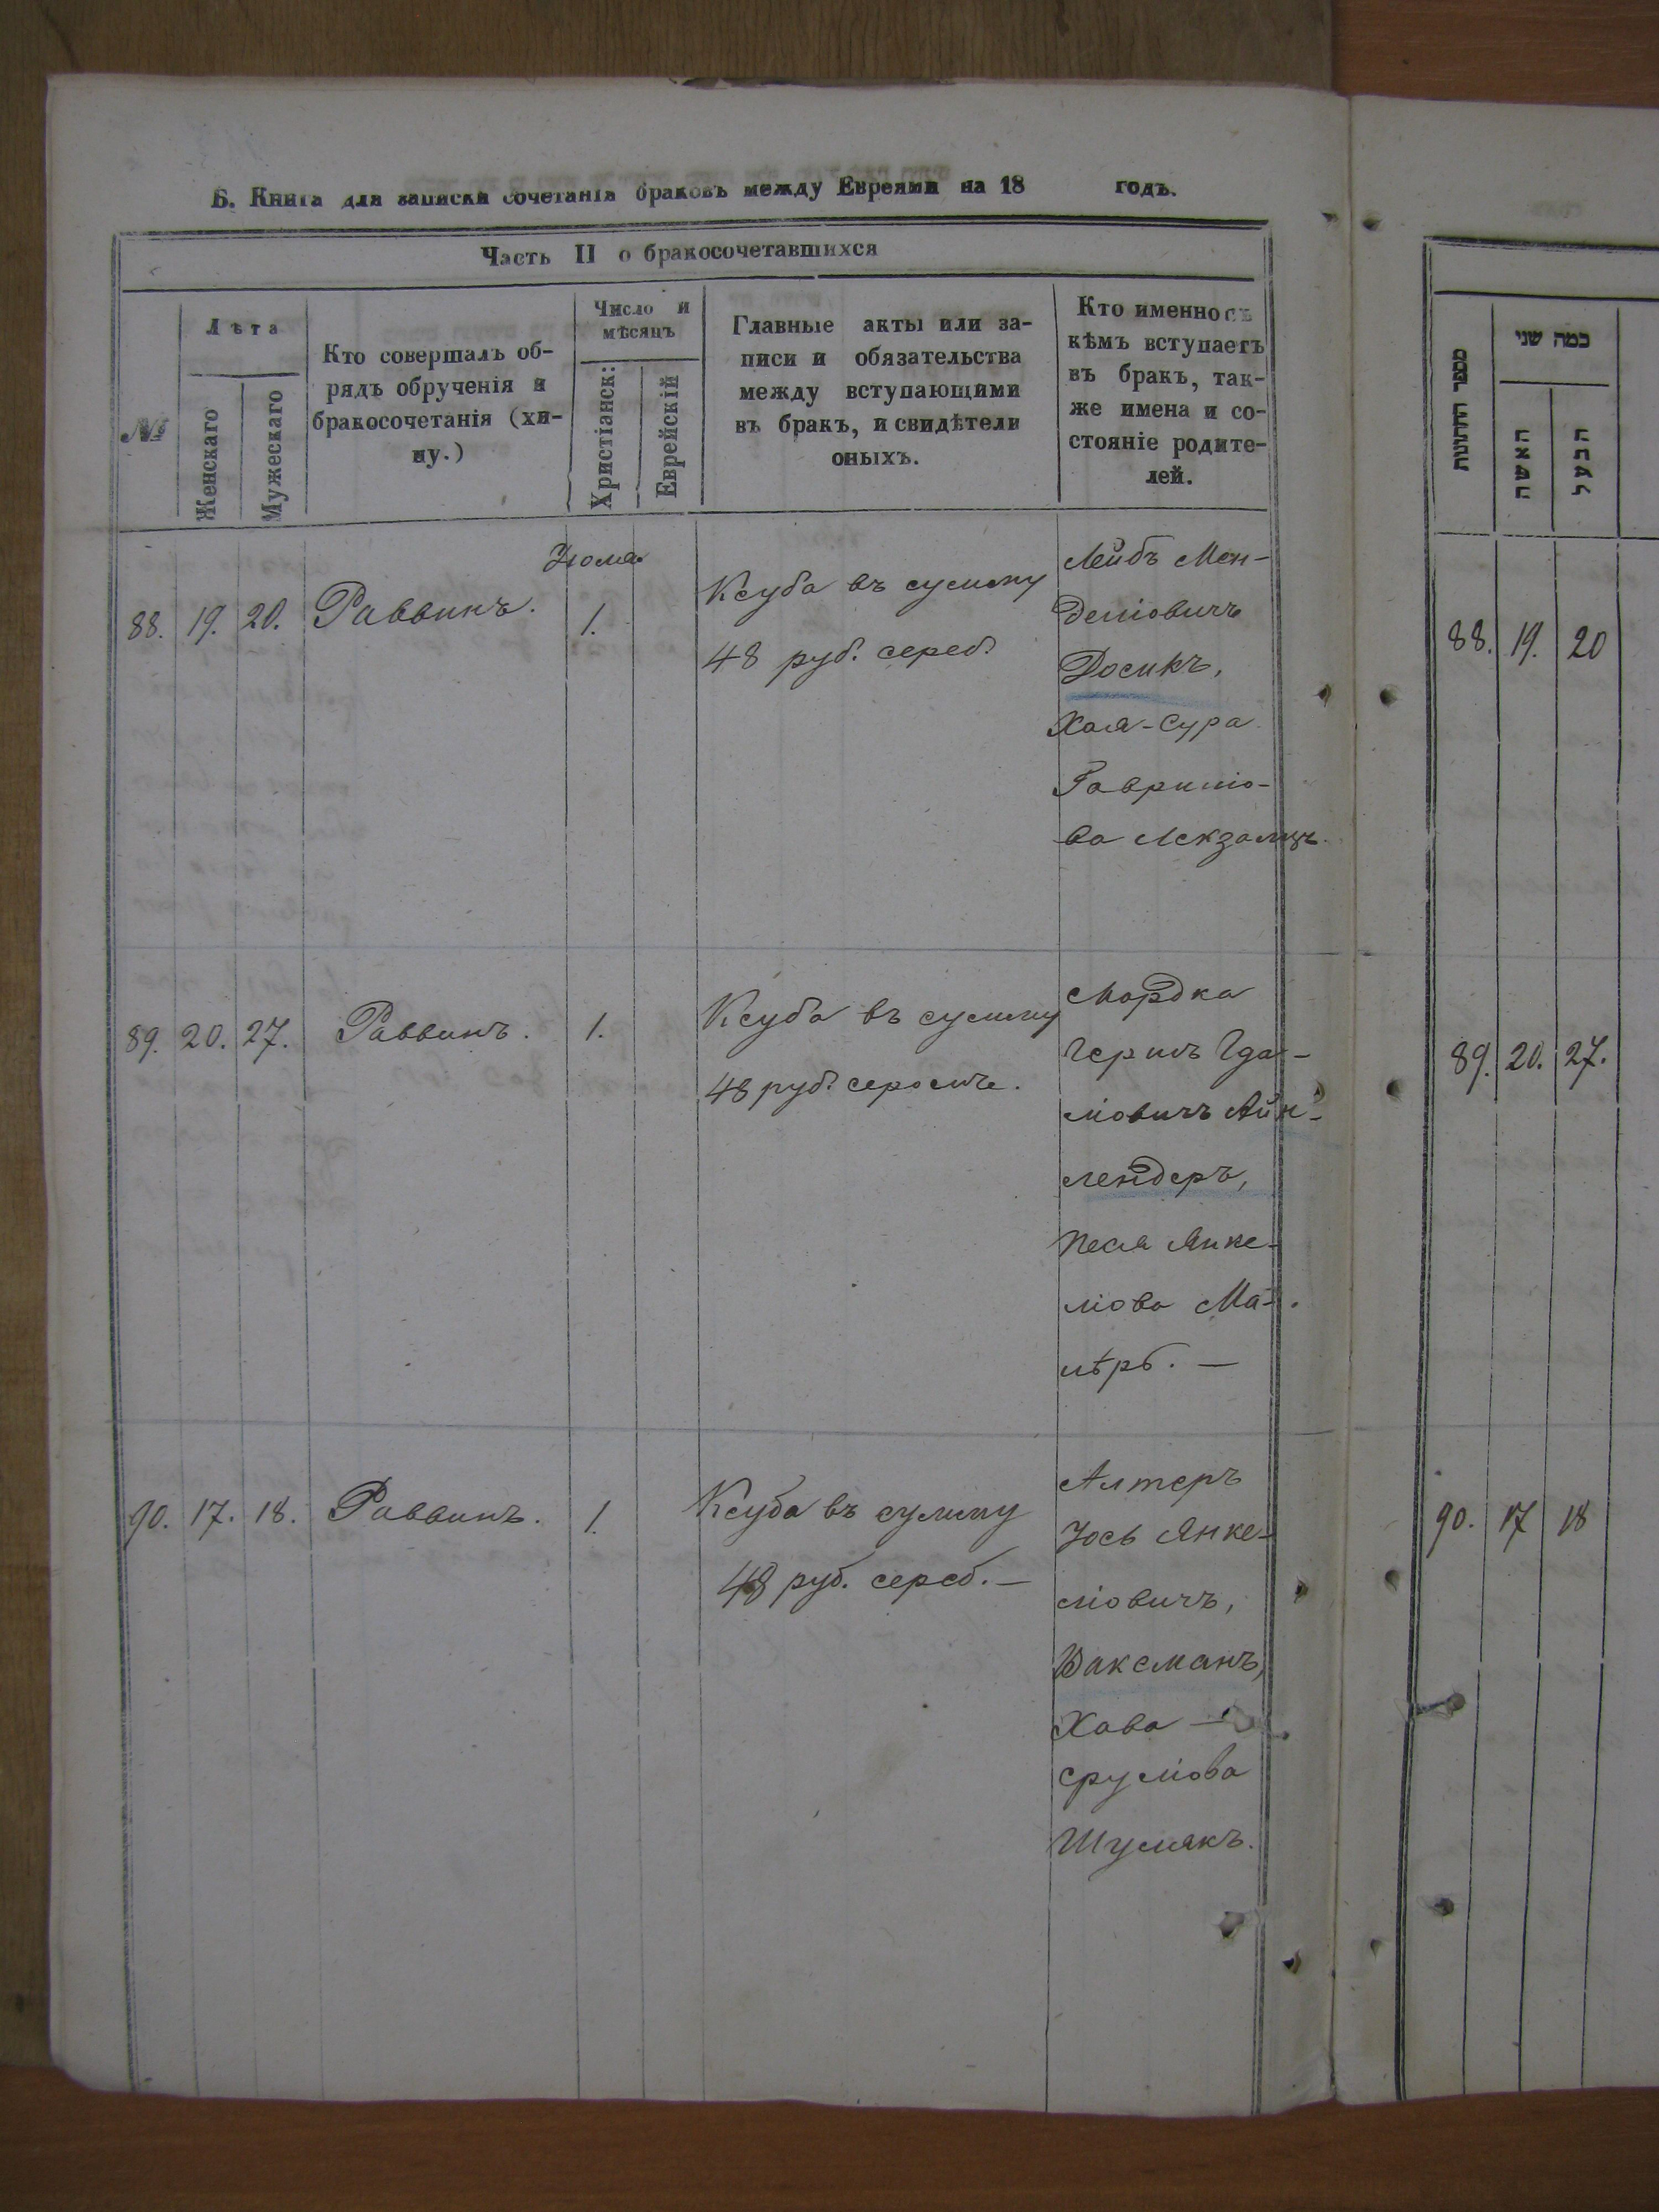 Б. Книга для записки сочетанія браковъ между Евреями на 18 годъ.
Часть II о бракосочетавшихся
№
Лѣта
Женскаго
Мужескаго
Кто совершалъ об-
рядъ обрученія и
бракосочетанія (хи-
пу.)
Число и
мѣсяцъ
Христіанск:
Еврейскій
Главные акты или за-
писи и обязательства
между вступающими
въ бракъ, и свидѣтели
оныхъ.
Кто именно съ
кѣмъ вступаетъ
въ бракъ, так-
же имена и со-
стояніе родите-
лей.
88. 19. 20. Раввинъ. 1.
Ксуба въ сумму
48 руб. сереб.
Лейбъ Мен-
деліовичъ
Досикъ,
Хая-Сура
Гавриліо-
ва
89. 20. 27. Раввинъ. 1.
Ксуба въ сумму
48 руб.
Мордка
Гершъ Гда-
ліовичъ Айн-
лендеръ,
Песя Янке-
ліова Ма-
90. 17. 18. Раввинъ. 1.
Ксуба въ сумму
48 руб. сереб. —
Алтеръ
Іось Янке-
ліовичъ,
Ваксманъ,
Хава —
Сруліова
Шулякъ.
מספר החתונות
כמה שני
האשה
הבעל
88. 19. 20
89. 20. 27.
90. 17 18